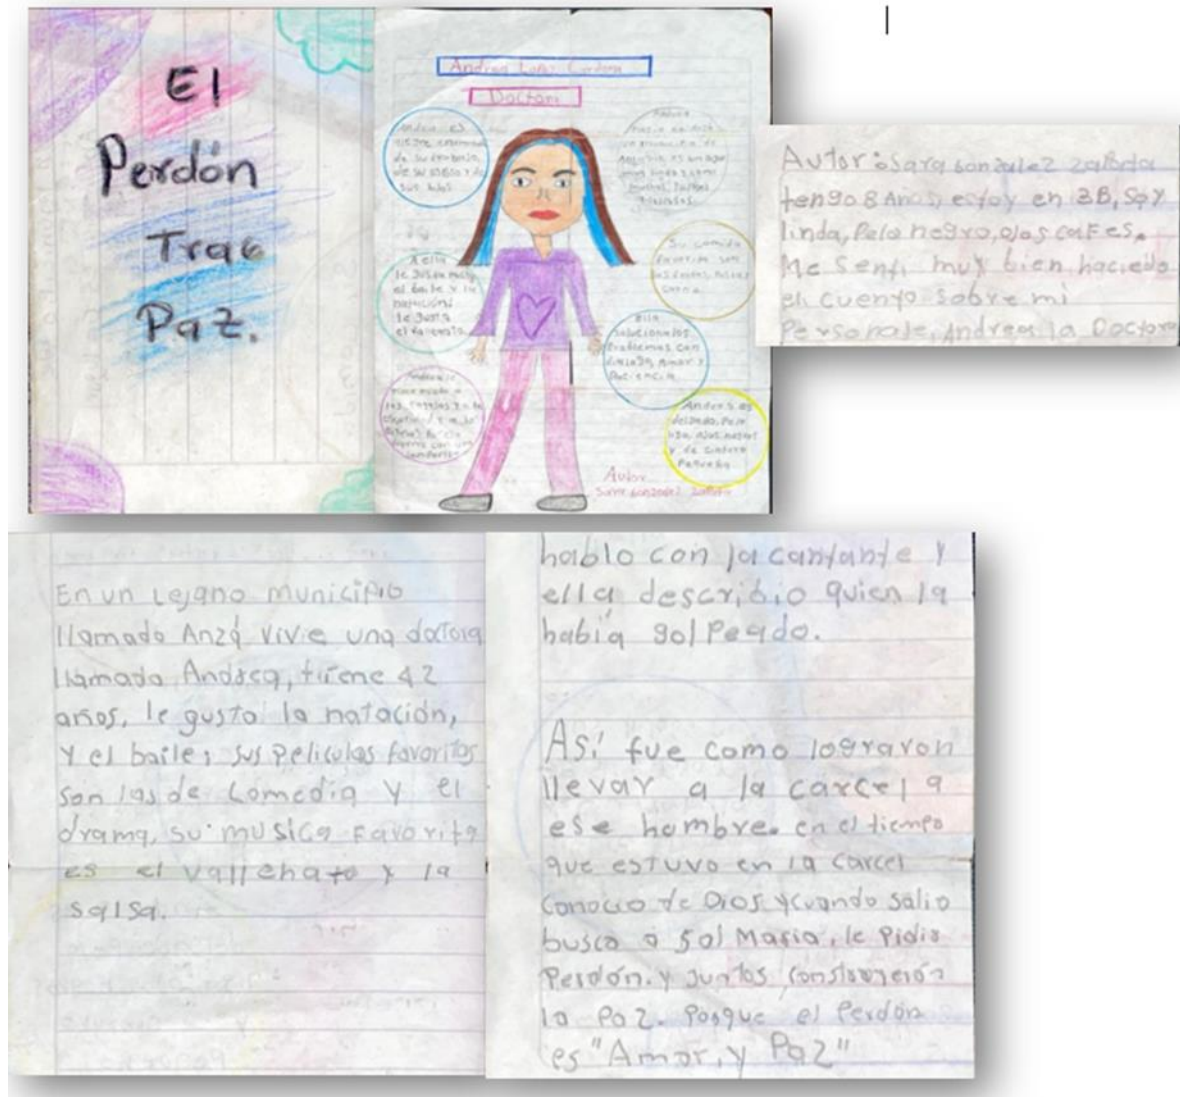 El
Perdón
Trae
Paz.
Doctora
Andrea es
de su trabajo,
de su
sus hijos
A ella
le gusta mucho
el baile y la
natación
le gusta
Su comida
favorita son
carne.
Ella
soluciona los
Problemas con
amor y
Paciencia
Andrea es
delgada, Pelo
ojos negros
y de cintura
Pequeña
Autor
Sara Gonzalez Zapata
Autor: Sara Gonzalez Zapata
tengo 8 Años, estoy en 3B, Soy
linda, Pelo negro, ojos caFes.
Me Senti muy bien haciedo
el cuento sobre mi
Personaje, Andrea la Doctora
En un Lejano Municipio
llamado Anzá vive una doctora
llamada Andrea, tiene 42
años, le gusto la natación,
Y el baile; sus Peliculas favoritas
son las de Comedia y el
drama, su musica Favorita
es el vallenato y la
salsa.
hablo con la cantante y
ella describio quien la
había golPeado.
Así fue como lograron
llevar a la carcel a
ese hombre. en el tiempo
que estuvo en la carcel
conocio de Dios y cuando salio
busco a Sol Maria, le Pidio
Perdón. y Juntos construyerón
la Paz. Porque el Perdón
es "Amor, y Paz"